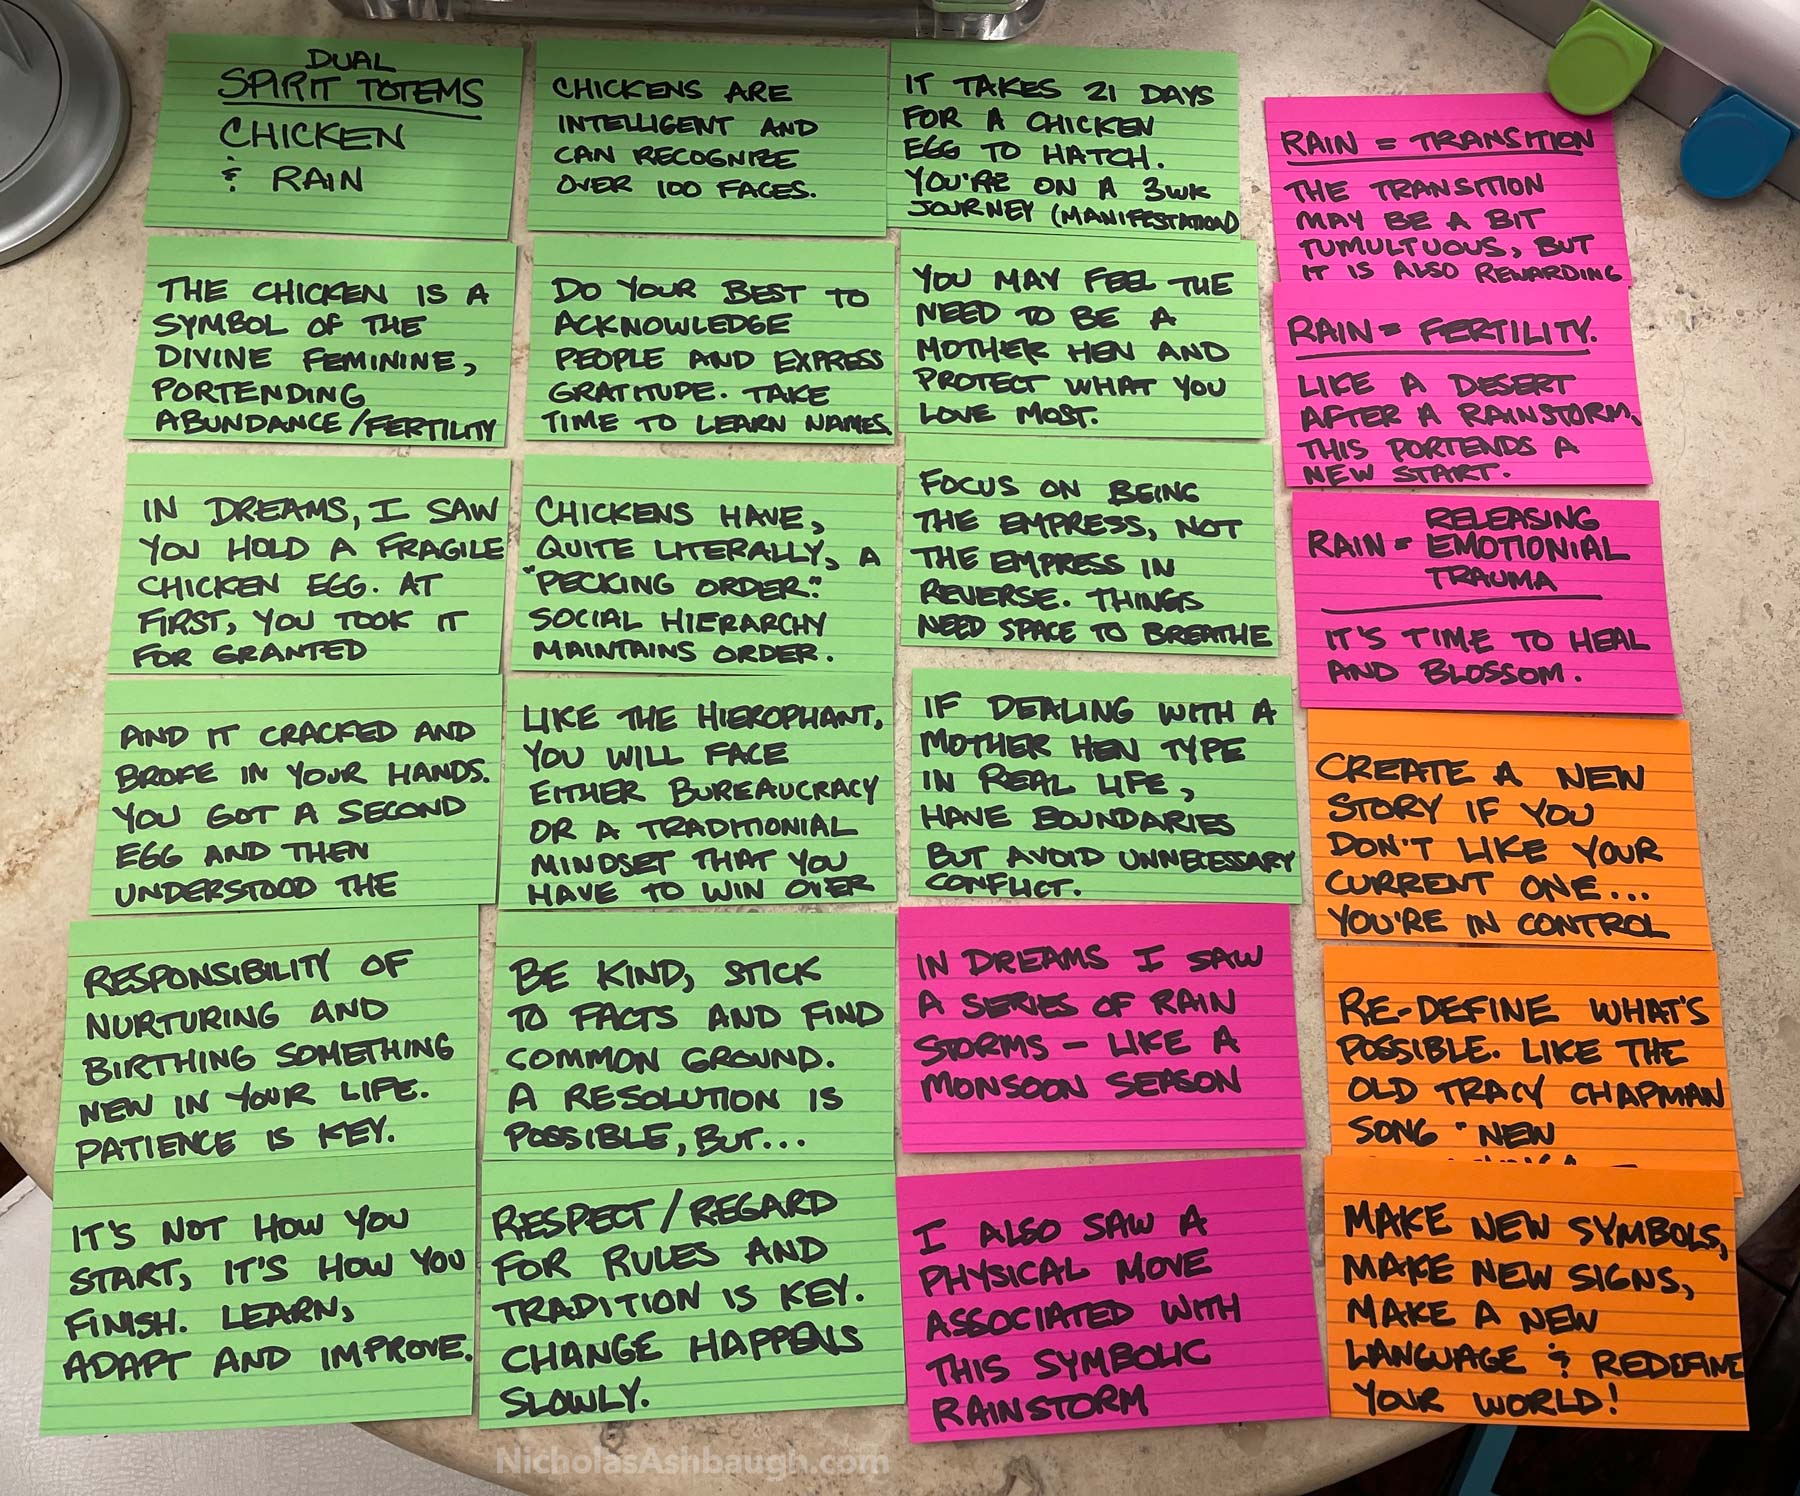 DUAL
SPIRIT TOTEMS
CHICKEN
& RAIN
THE CHICKEN IS A
SYMBOL OF THE
DIVINE FEMININE,
PORTENDING
ABUNDANCE/FERTILITY
IN DREAMS, I SAW
YOU HOLD A FRAGILE
CHICKEN EGG. AT
FIRST, YOU TOOK IT
FOR GRANTED
AND IT CRACKED AND
BROKE IN YOUR HANDS.
YOU GOT A SECOND
EGG AND THEN
UNDERSTOOD THE
RESPONSIBILITY OF
NURTURING AND
BIRTHING SOMETHING
NEW IN YOUR LIFE.
PATIENCE IS KEY.
IT'S NOT HOW YOU
START, IT'S HOW YOU
FINISH. LEARN,
ADAPT AND IMPROVE.
CHICKENS ARE
INTELLIGENT AND
CAN RECOGNIZE
OVER 100 FACES.
DO YOUR BEST TO
ACKNOWLEDGE
PEOPLE AND EXPRESS
GRATITUDE. TAKE
TIME TO LEARN NAMES.
CHICKENS HAVE,
QUITE LITERALLY, A
"PECKING ORDER."
SOCIAL HIERARCHY
MAINTAINS ORDER.
LIKE THE HIEROPHANT,
YOU WILL FACE
EITHER BUREAUCRACY
OR A TRADITIONIAL
MINDSET THAT YOU
HAVE TO WIN OVER
BE KIND, STICK
TO FACTS AND FIND
COMMON GROUND.
A RESOLUTION IS
POSSIBLE, BUT...
RESPECT/REGARD
FOR RULES AND
TRADITION IS KEY.
CHANGE HAPPENS
SLOWLY.
IT TAKES 21 DAYS
FOR A CHICKEN
EGG TO HATCH.
YOU'RE ON A 3WK
JOURNEY (MANIFESTATION)
YOU MAY FEEL THE
NEED TO BE A
MOTHER HEN AND
PROTECT WHAT YOU
LOVE MOST.
FOCUS ON BEING
THE EMPRESS, NOT
THE EMPRESS IN
REVERSE. THINGS
NEED SPACE TO BREATHE
IF DEALING WITH A
MOTHER HEN TYPE
IN REAL LIFE,
HAVE BOUNDARIES
BUT AVOID UNNECESSARY
CONFLICT.
IN DREAMS I SAW
A SERIES OF RAIN
STORMS - LIKE A
MONSOON SEASON
I ALSO SAW A
PHYSICAL MOVE
ASSOCIATED WITH
THIS SYMBOLIC
RAINSTORM
RAIN = TRANSITION
THE TRANSITION
MAY BE A BIT
TUMULTUOUS, BUT
IT IS ALSO REWARDING
RAIN = FERTILITY.
LIKE A DESERT
AFTER A RAINSTORM,
THIS PORTENDS A
NEW START.
RAIN = RELEASING
EMOTIONIAL
TRAUMA
IT'S TIME TO HEAL
AND BLOSSOM.
CREATE A NEW
STORY IF YOU
DON'T LIKE YOUR
CURRENT ONE...
YOU'RE IN CONTROL
RE-DEFINE WHAT'S
POSSIBLE. LIKE THE
OLD TRACY CHAPMAN
SONG "NEW
MAKE NEW SYMBOLS,
MAKE NEW SIGNS,
MAKE A NEW
LANGUAGE & REDEFINE
YOUR WORLD!
NicholasAshbaugh.com